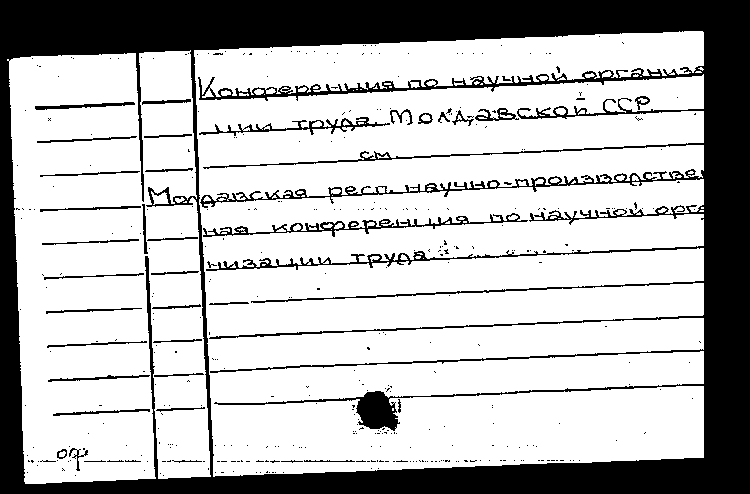 Конференция по научной организа
ции труда. Молдавской ССР
см.
Молдавская респ. научно-производствен
ная конференция по научной орга
низации труда
оф